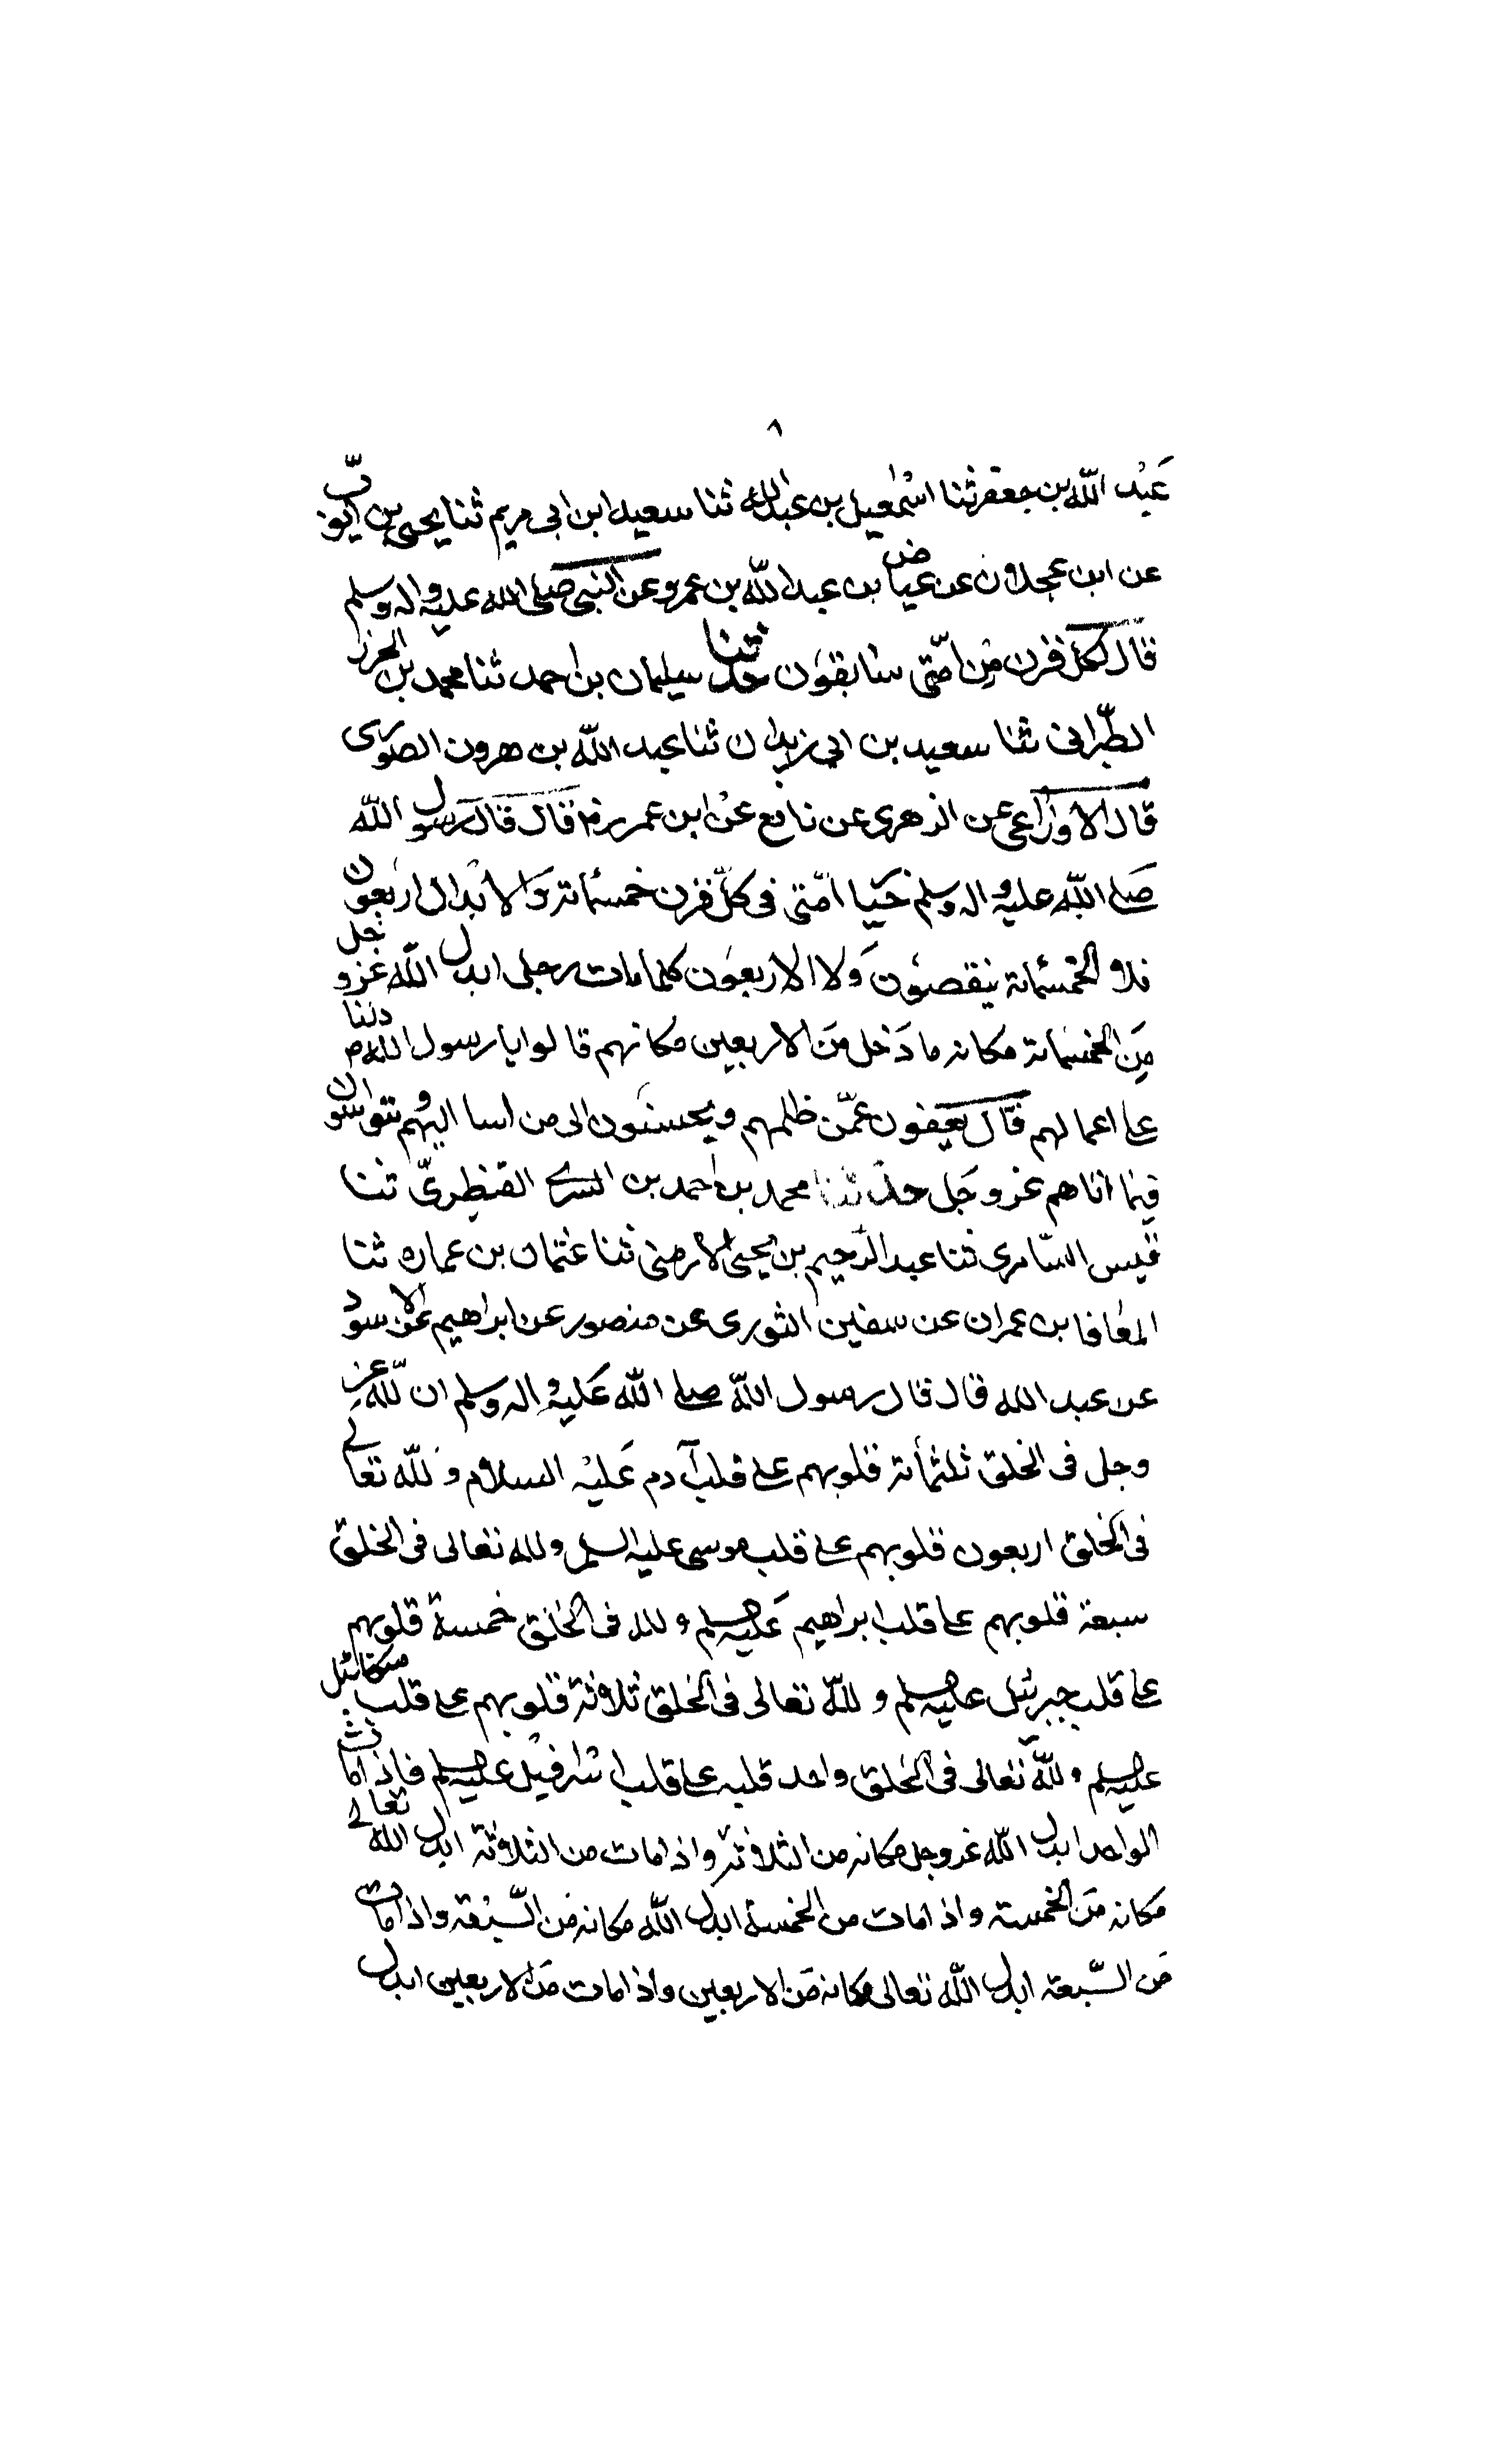 ٨
عَبْد الله بن جعفر ثنا اسمٰعيل بن عبد الله ثنا سعيد ابن ابى مريم ثنا يحيى بن ايوّب
عن ابن عجلان عن عياض بن عبد الله بن عمرو عن النبى صلى الله عليه واله وسلم
قال لكل قرن من امّتى سابقون حدثنا سليمان بن احمد ثنا محمد بن الخزز
الطّبرانى ثنا سعيد بن ابى زيدان ثنا عبد الله بن هرون الصورى
قال الاوزاعى عن الزهرى عن نافع عن ابن عمر رض قال قال رسول الله
صلى الله عليه واله وسلم خيا امّتى فى كلّ قرن خمسمائة والابدال اربعون
فلا الخمسمائة ينقصون ولا الاربعون كلما مات رجل ابدل الله عز وجل
من الخمسمائة مكانه ما دخل من الاربعين مكانهم قالوا يا رسول الله دلنا
على اعمالهم قال يعفون عمّن ظلمهم ويحسنون الى من اسا اليهم ويتواسون
فيما اتاهم عز وجل حدثنا محمد بن احمد بن السرى القنطرىّ ثنا
قيس السّامرى ثنا عبد الرّحيم بن يحيى الارمنى ثنا عثمان بن عماره ثنا
المعافا بن عمران عن سفين الثورى عن منصور عن ابراهيم عن الاسود
عن عبد الله قال قال رسول الله صلى الله عليه واله وسلم ان لله عز
وجل فى الخلق ثلثمأئة قلوبهم على قلب آدم عليه السلام و لله تعالى
فى الخلق اربعون قلوبهم على قلب موسى عليه السلم ولله تعالى فى الخلق
سبعة قلوبهم على قلب ابراهيم عليه السلم و لله فى الخلق خمسة قلوبهم
على قلب جبرئيل عليه السلم و لله تعالى فى الخلق ثلاثة قلوبهم على قلب ميكائيل
عليه السلم و لله تعالى فى الخلق واحد قلبه على قلب اسرفيل عليه السلم فاذا مات
الواحد ابدل الله عز وجل مكانه من الثلاثة واذا مات من الثلاثة ابدل الله تعالى
مكانه من الخمسة واذا مات من الخمسة ابدل الله مكانه من السّبعة واذا مات
من السّبعة ابدل الله تعالى مكانه من الاربعين واذا مات من الاربعين ابدل